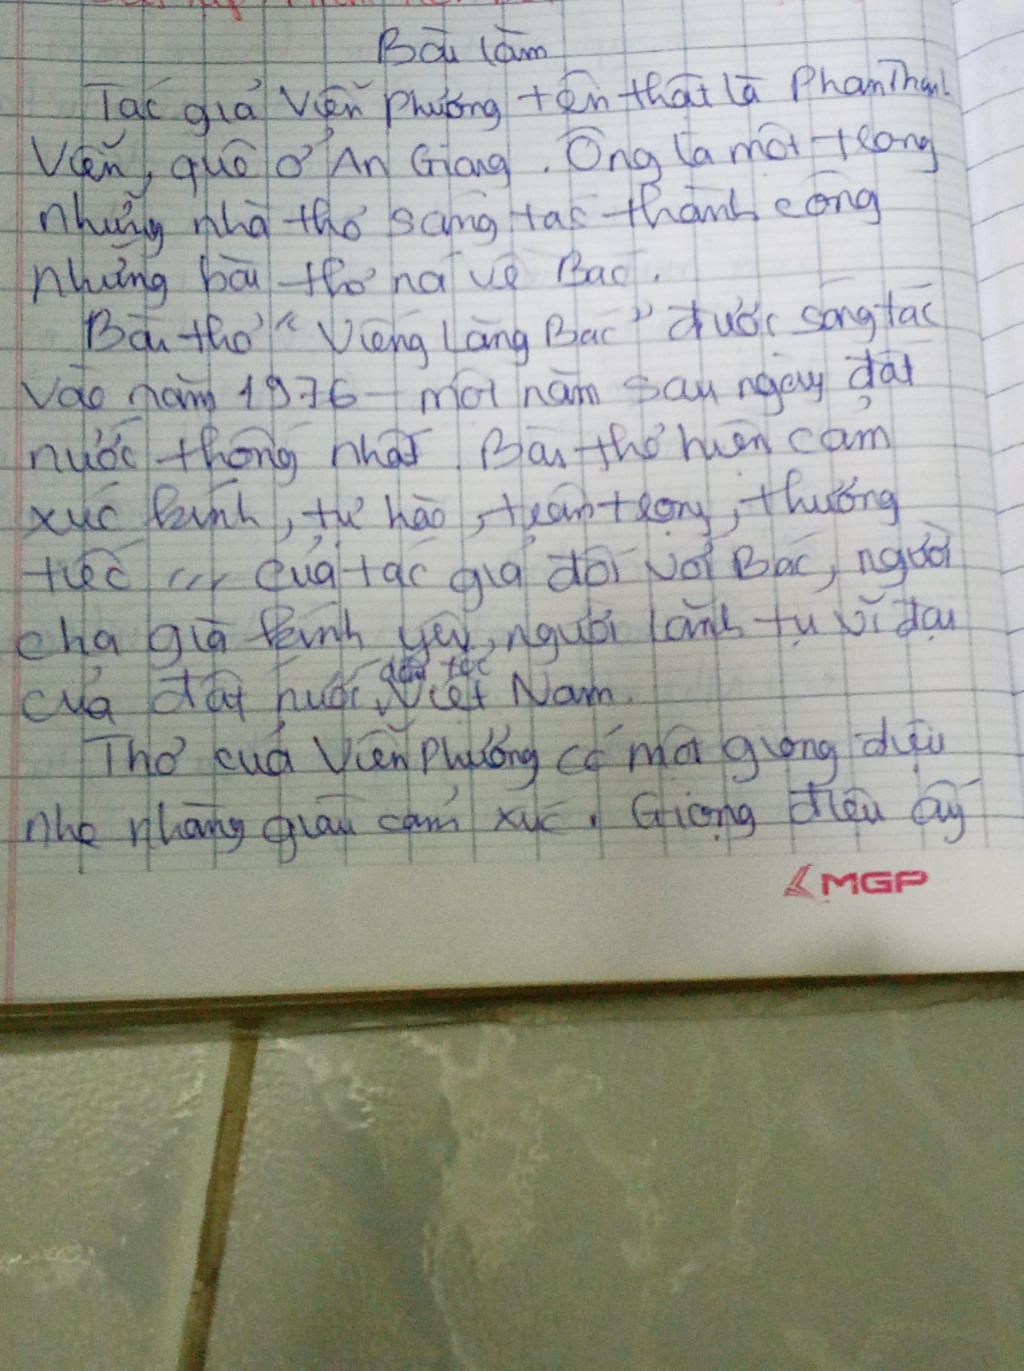 Bài làm
Tác giả Viễn Phương tên thật là Phan Thanh
Viễn, quê ở An Giang. Ông là một trong
những nhà thơ sáng tác thành công
những bài thơ na về Bác.
Bài thơ "Viếng Lăng Bác" được sáng tác
vào năm 1976 - một năm sau ngày đất
nước thống nhất. Bài thơ hiện cảm
xúc kính, tự hào, trân trọng, thương
tiếc ... của tác giả đối với Bác, người
cha già kính yêu, người lãnh tụ vĩ đại
của đất nước, dân tộc Việt Nam.
Thơ của Viễn Phương có một giọng điệu
nhẹ nhàng giàu cảm xúc. Giọng điệu ấy
MGP